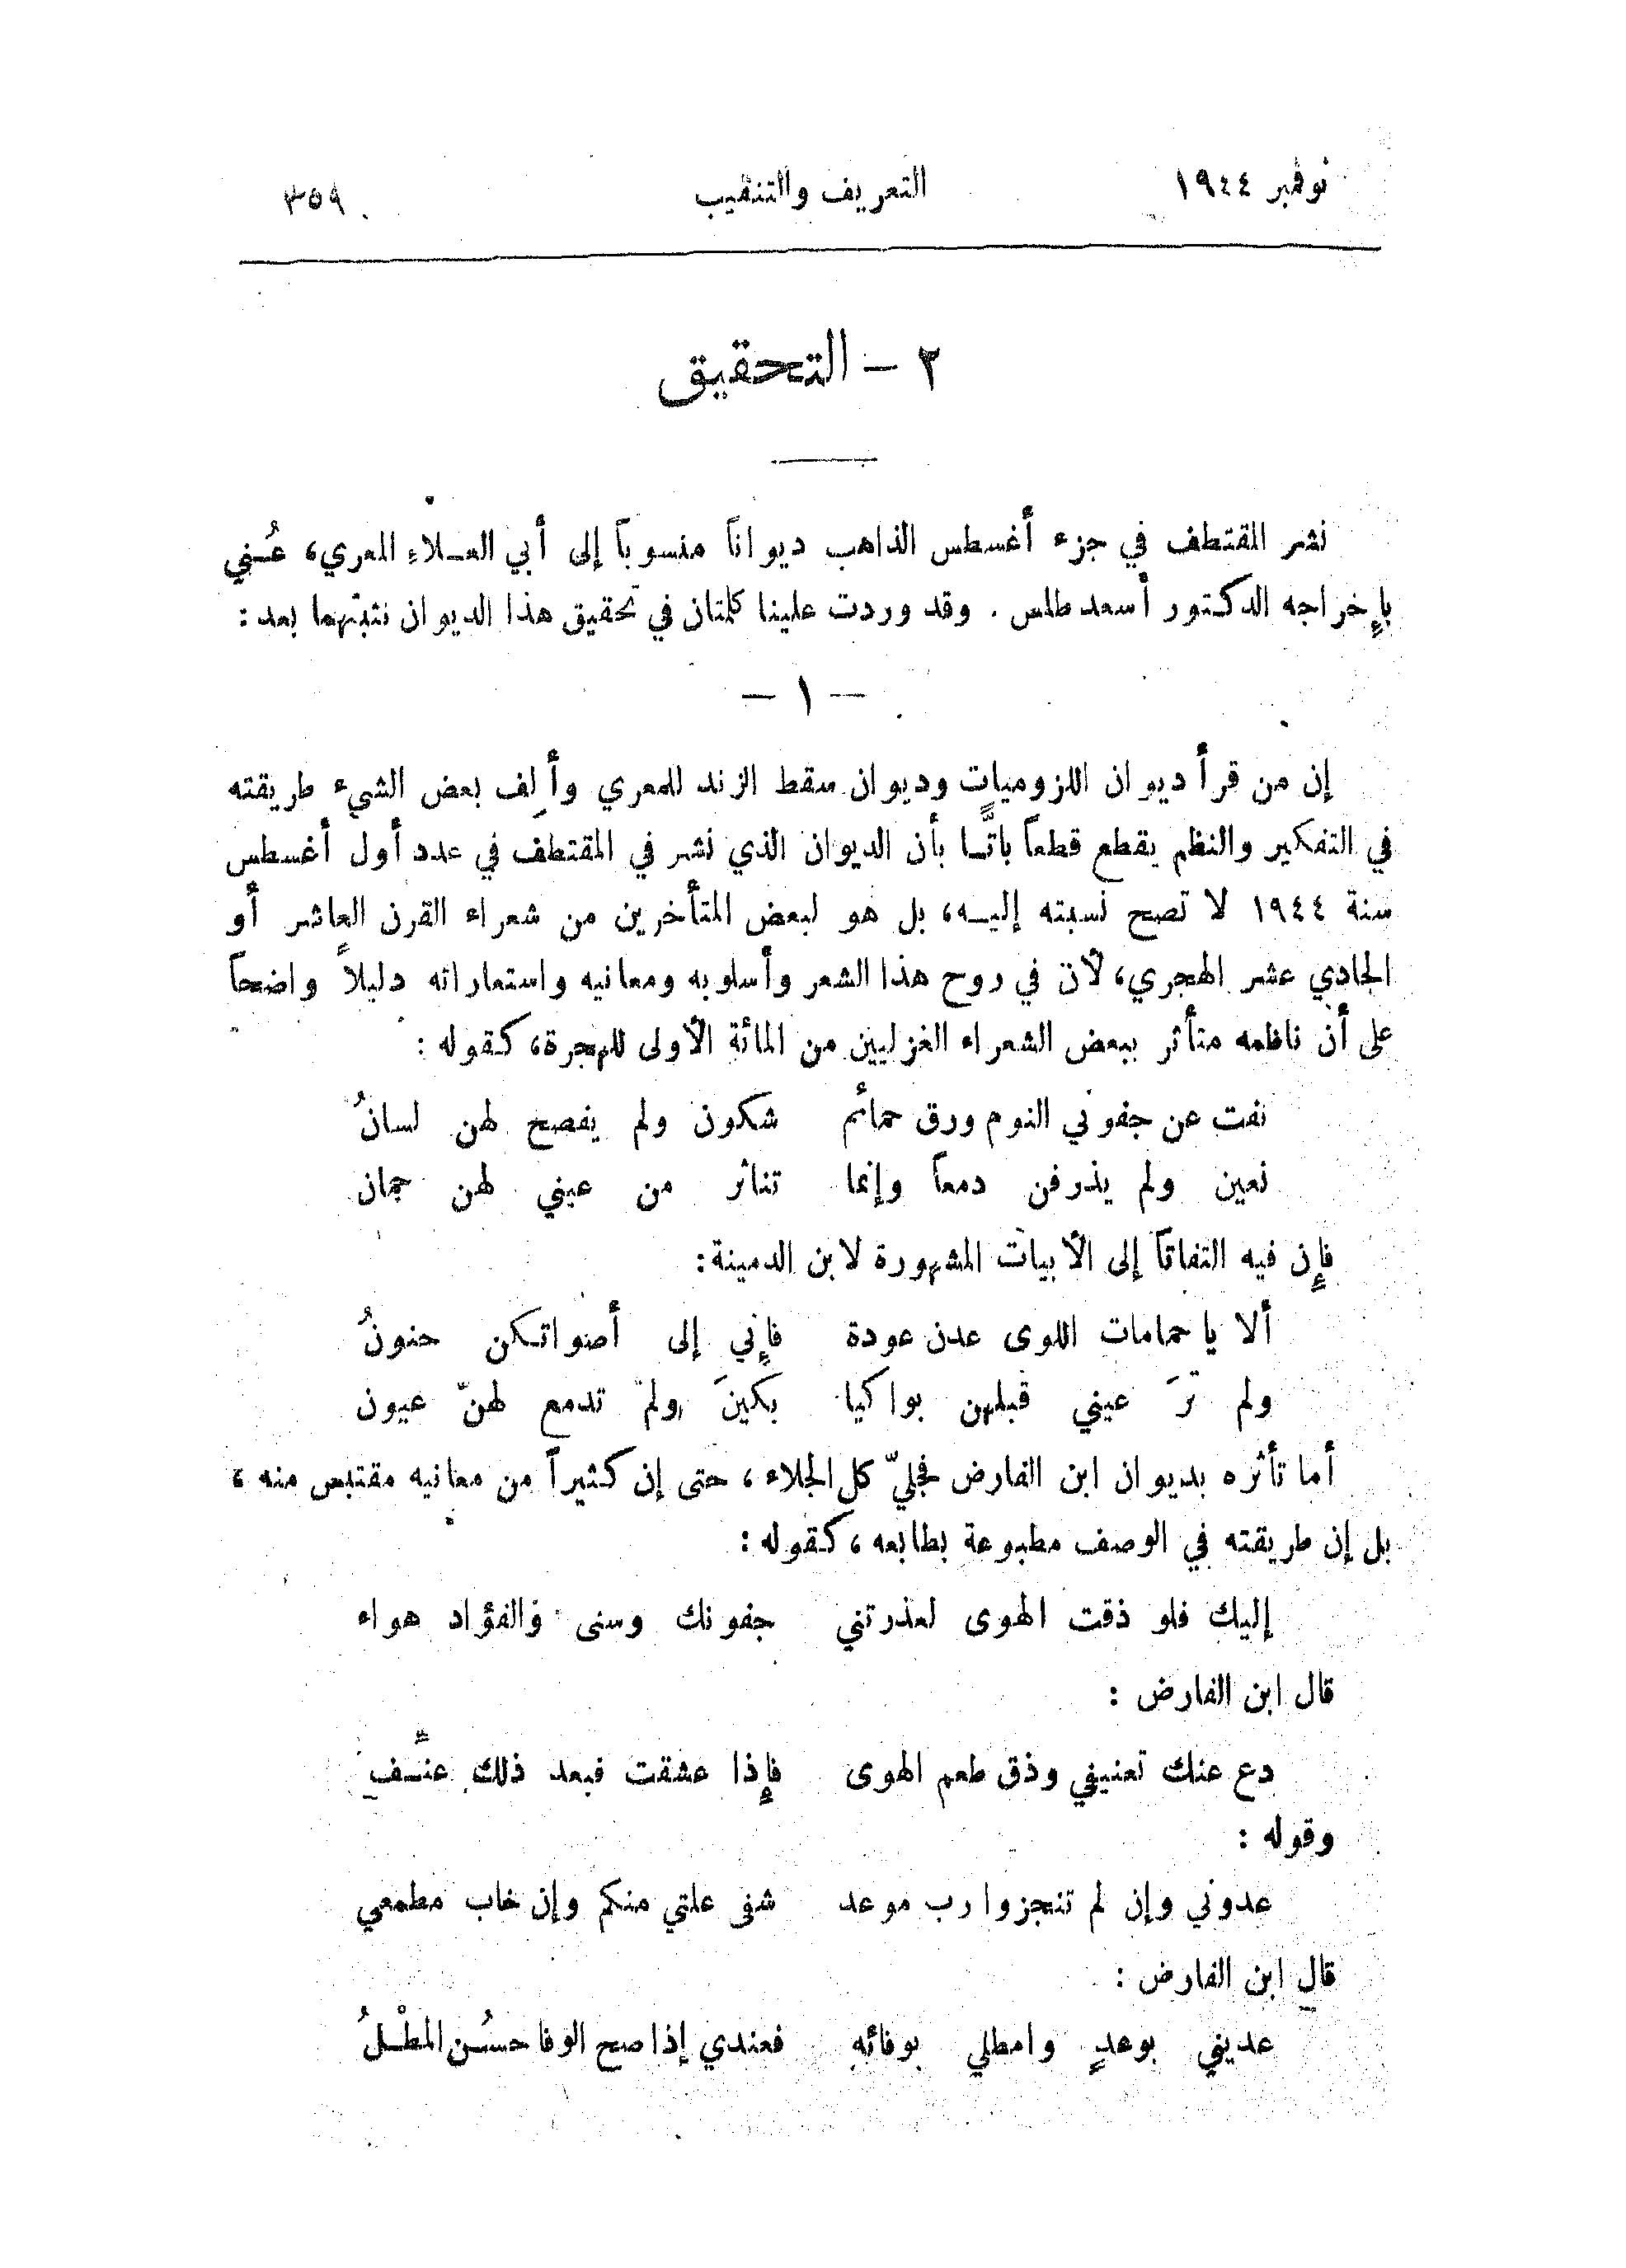 نوفمبر ١٩٤٤ التعريف والتنقيب ٣٥٩
٢ – التحقيق
نشر المقتطف في جزء أغسطس الذاهب ديواناً منسوباً إلى أبي العلاء المعري، عُني
بإخراجه الدكتور أسعد طلس . وقد وردت علينا كلمتان في تحقيق هذا الديوان نثبتهما بعد :
– ١ –
إن من قرأ ديوان اللزوميات وديوان سقط الزند للمعري وألِف بعض الشيء طريقته
في التفكير والنظم يقطع قطعاً باتًّا بأن الديوان الذي نشر في المقتطف في عدد أول أغسطس
سنة ١٩٤٤ لا تصح نسبته إليه، بل هو لبعض المتأخرين من شعراء القرن العاشر أو
الحادي عشر الهجري، لأن في روح هذا الشعر وأسلوبه ومعانيه واستعاراته دليلاً واضحاً
على أن ناظمه متأثر ببعض الشعراء الغزليين من المائة الأولى للهجرة، كقوله :
نفت عن جفوني النوم ورق حمائم شكون ولم يفصح لهن لسانُ
نعين ولم يذرفن دمعاً وإنما تناثر من عيني لهن جمان
فإن فيه التفاتاً إلى الأبيات المشهورة لابن الدمينة:
ألا يا حمامات اللوى عدن عودة فإني إلى أصواتكن حنونُ
ولم ترَ عيني قبلهن بواكيا بكينَ ولم تدمع لهنّ عيون
أما تأثره بديوان ابن الفارض فجليّ كل الجلاء ، حتى إن كثيراً من معانيه مقتبس منه ،
بل إن طريقته في الوصف مطبوعة بطابعه ، كقوله :
إليك فلو ذقت الهوى لعذرتني جفونك وسنى والفؤاد هواء
قال ابن الفارض :
دع عنك تعنيفي وذق طعم الهوى فإذا عشقت فبعد ذلك عنِّف
وقوله :
عدوني وإن لم تنجزوا رب موعد شفى علتي منكم وإن خاب مطمعي
قال ابن الفارض :
عديني بوعدٍ وامطلي بوفائه فعندي إذا صح الوفا حسُن المطْلُ